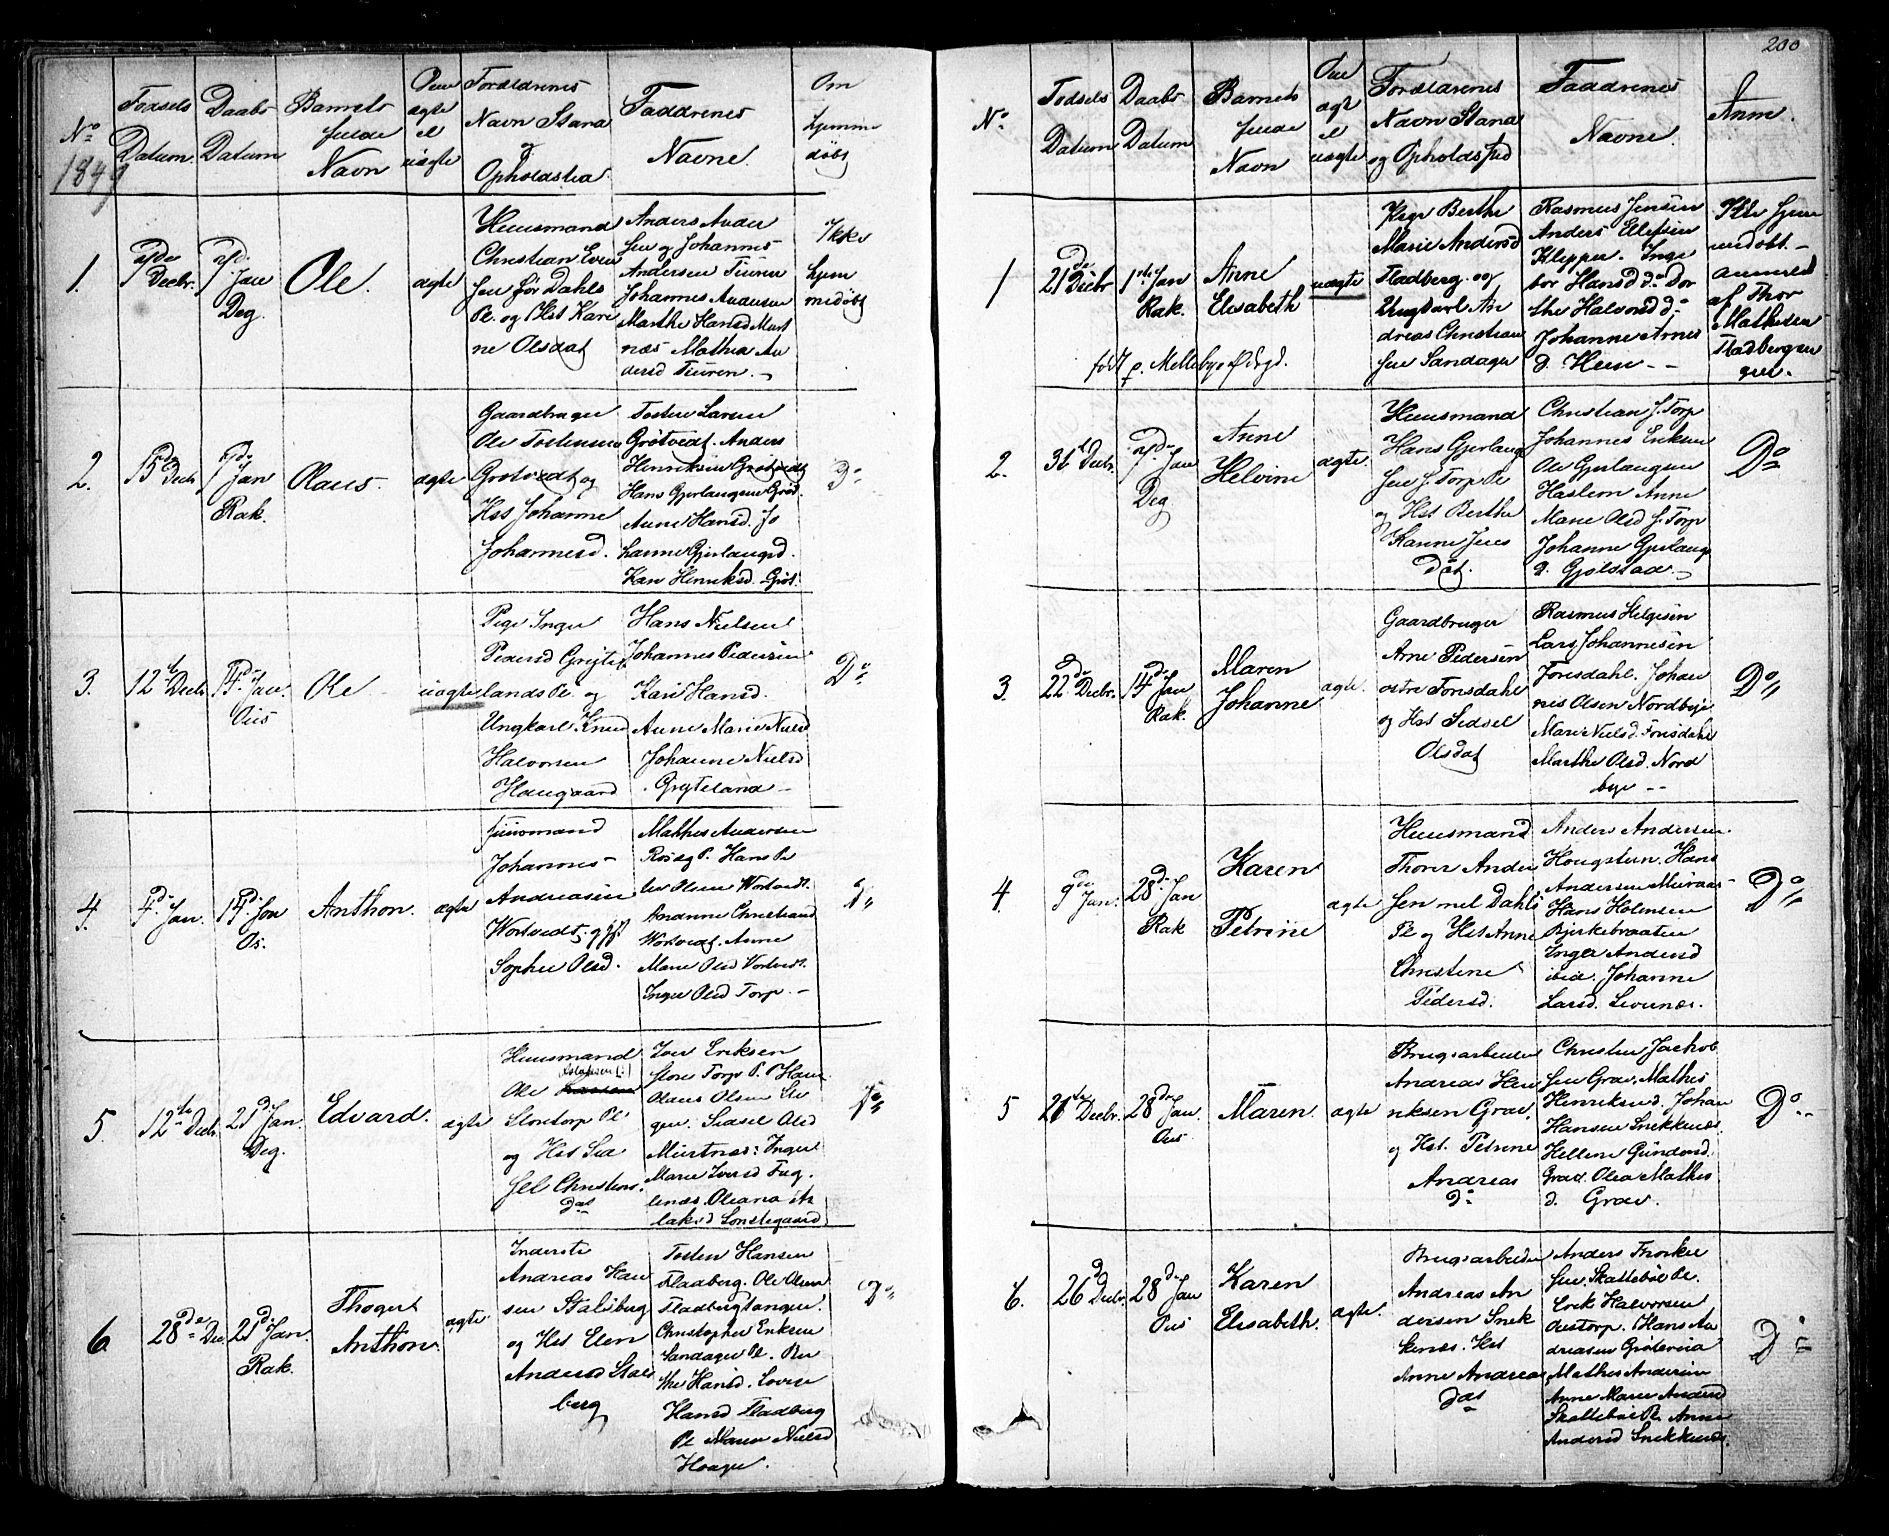 200
No
1849
Fødsels
Datum
Daabs
Datum
Barnets
fulde
Navn
Om
ægte
el
uægte
Forældrenes
Navn Stand
og
Opholdsted
Faddrenes
Navne.
Om
hjemme
døbt
1.
Decbr.
Jan
Deg.
Ole.
ægte
Huusmand
Christian Even
sen
Dahls
Pl. og Hst Kari
ne Olsdat
Anders Ander
sen og Johannes
Andersen
Johannes Andersen
Marthe Hansd Murt
næs Mathea An
dersd
Ikke
hjem
medøbt
2.
15de Decb
7de Jan
Rak.
Olaus.
ægte
Gaardbruger
Ole Tostensen
Grøtvedt og
Hst Johanne
Johannesd.
Tosten Larsen
Grøtvedt. Anders
Henriksen Grøtvedt
Hans Gjerlaugsen Grøt.
Anne Hansd. Jo
hanne Gjerlaugsd.
Kari Henriksd. Grøt.
Do
3.
12te Decbr
14de Jan.
Ous
Ole
uægte
Pige Inger
Pedersd Grytte
lands Pl. og
Ungkarl Knud
Halvorsen
Haugaard
Hans Nielsen
Johannes Pedersen
Kari Hansd.
Anne Marie Nielsd
Johanne Nielsd
Gryteland
Do
4.
4de Jan.
14de Jan
Os.
Anthon.
ægte
Huusmand
Johannes
Andreasen
Wortvedt. og Hst
Sophie Olsd.
Mathis Andersen
Hans Pe
ter Olsen Wortvedt.
Johanne Christiansd
Wortvedt. Anne
Marie Olsd Vortvedt.
Inger Olsd Torp.
Do
5.
12te Decbr.
21d Jan.
Deg.
Edvard.
ægte
Huusmand
Ole
Storetorp Pl
og Hst Sid
sel Christians
dat
Iver Eriksen
store Torp Pl. Hans
Olaus Olsen
gen. Sidsel Olsd
Murtnæs. Inger
Marie Iversd Fug
lenæs. Oleana As
laksd
Do
6.
28de Dec
21d Jan.
Rak.
Thoger
Anthon
ægte
Inderste
Andreas Han
sen Stalsberg
og Hst Elen
Andersd Stals
berg
Tosten Hansen
Fladberg. Ole Olsen
Fladbergtangen.
Christopher Eriksen
Sandager Pl. Ber
the Hansd. Lovise
Hansd Fladberg
Pl Maren Nielsd
Haagen.
Do
No
Fødsels
Datum
Daabs
Datum
Barnets
fulde
Navn
Om
ægte
el
uægte
Forældrenes
Navn Stand
og Opholdssted
Faddrenes
Navne.
Anm.
1
21de Decbr
1ste Jan
Rak.
Anne
Elisabeth
uægte
født p. Mellebye
Pige Berthe
Marie Andersd
Fladberg. og
Ungkarl An
dreas Christian
sen Sandager
Rasmus Jensen
Anders Ellefsen
Klippen. Inge
bor Hansd do Dor
the Halvorsd do
Johanne Arnes
d. Huse
Ikke hjem
medøbt.
anmeldt
af Thor
Mathisen
Fladbergen
gen.
2.
31te Decbr.
7de Jan
Deg
Anne
Helvine
ægte.
Huusmand
Hans Gjerlaug
sen l. Torp Pl
og Hst Berthe
Karine Jens
dat.
Christian l. Torp
Johannes Eriksen
Ole Gjerlaugsen
Haslem Anne
Marie Olsd l. Torp
Johanne Gjerlaugs
d. Gjølstad.
Do
3.
22de Decbr.
14de Jan
Rak.
Maren
Johanne
ægte.
Gaardbruger
Arne Pedersen
østre Tørsdahl
og Hst Sidsel
Olsdat
Rasmus Helgesen
Lars Johannesen
Johan
nes Olsen Nordbye.
Mari Nielsd.
Marthe Olsd. Nord
bye
Do
4.
9de Jan.
28de Jan
Rak
Karen
Petrine
ægte
Huusmand
Thorer Ander
sen mel Dahls
Pl og Hst Anne
Christine
Pedersd.
Anders Andersen
Hougsteen. Hans
Andersen
Hans Holmsen
Bjerkebraaten
Inger Andersd
ibid. Johanne
Larsd.
Do
5
21te Decbr.
28de Jan.
Ous
Maren.
ægte
Brugsarbeider
Andreas Hen
riksen Grav.
og Hst. Petrine
Andreas
do
Christen Jackob
sen Grav. Mathis
Henriksend. Johan
Hansen Snekkenæs.
Hellene Gundersd.
Grav. Olea Mathis
d. Grav.
Do
6.
26d Decbr.
28de Jan
Ous
Karen
Elisabeth.
ægte.
Brugsarbeider
Andreas An
dersen Snek
kenæs. Hst
Anne Andreas
dat
Anders Thorkil
sen. Skattebøl Pl.
Erik Halvorsen
Oustorp. Hans An
dreasen
Mathis Andersen
Anne Marie Andersd
Skattebøl Pl. Anne
Andersd Snekkenæs.
Do